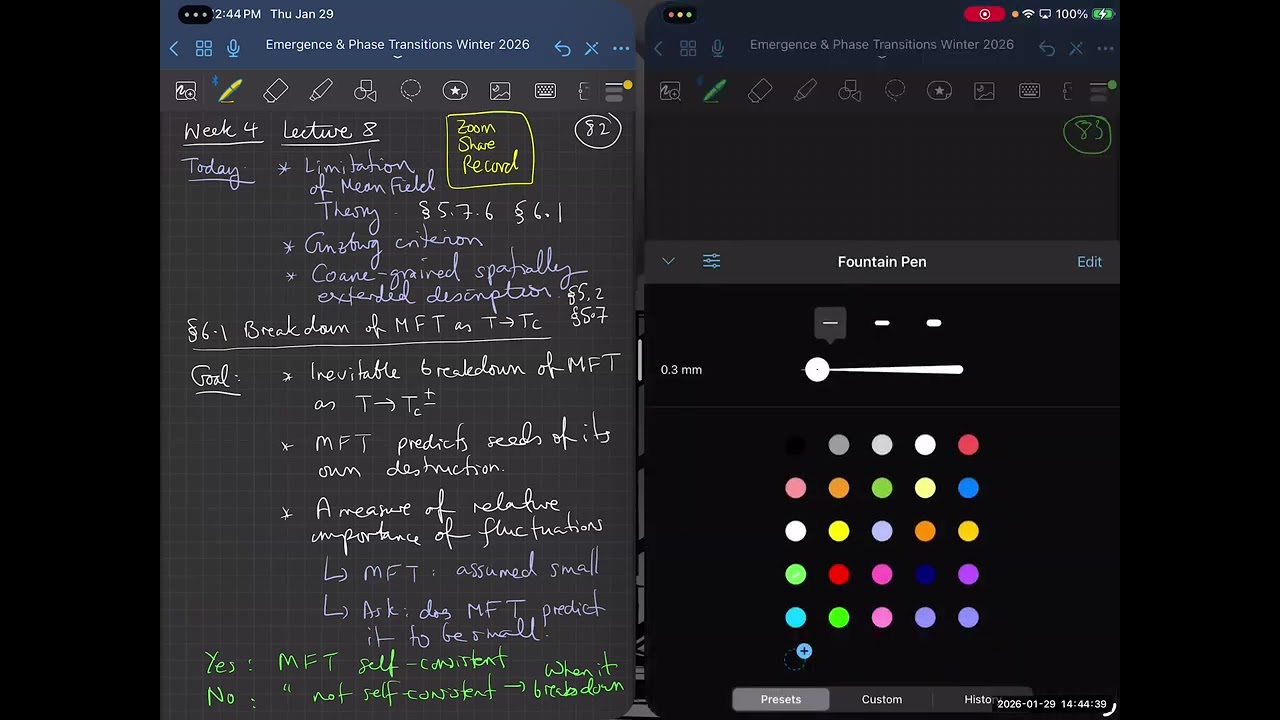 2:44 PM Thu Jan 29
100%
Emergence & Phase Transitions Winter 2026
Emergence & Phase Transitions Winter 2026
Week 4 Lecture 8
Zoom
Share
Record
82
Today * Limitation
of Mean Field
Theory. §5.7.6 §6.1
* Ginzburg criterion
* Coarse-grained spatially
extended description. §5.2
§5.7
§6.1 Breakdown of MFT as T→Tc
Goal: * Inevitable breakdown of MFT
as T→Tc±
* MFT predicts seeds of its
own destruction.
* A measure of relative
importance of fluctuations
↳ MFT: assumed small
↳ Ask: does MFT predict
it to be small.
Yes: MFT self-consistent
No: " not self-consistent → when it
breaks down
83
Fountain Pen
Edit
0.3 mm
Presets
Custom
History
2026-01-29 14:44:39